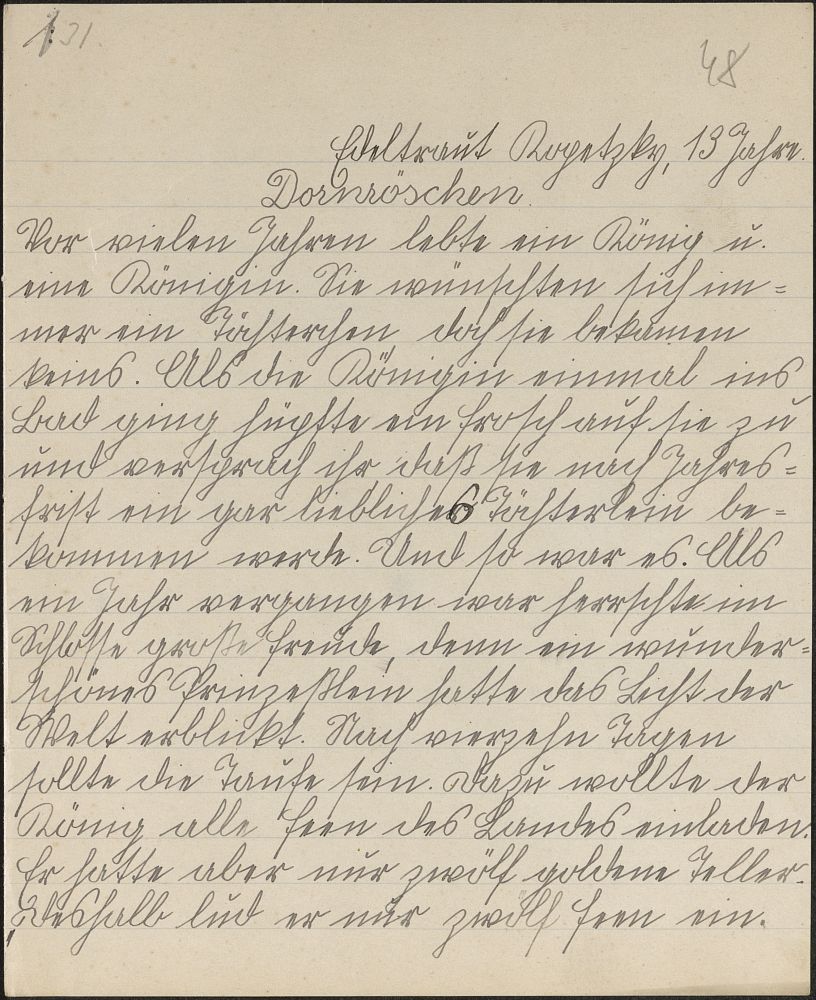 131.
48
Edeltraut Kopetzky, 13 Jahre.
Dornröschen.
Vor vielen Jahren lebte ein König u.
eine Königin. Sie wünschten sich im=
mer ein Töchterchen, doch sie bekamen
keins. Als die Königin einmal ins
Bad ging hüpfte ein Frosch auf sie zu
und versprach ihr, daß sie nach Jahres=
frist ein gar liebliches Töchterlein be=
kommen werde. Und so war es. Als
ein Jahr vergangen war herrschte im
Schlosse große Freude, denn ein wunder=
schönes Prinzeßlein hatte das Licht der
Welt erblickt. Nach vierzehn Tagen
sollte die Taufe sein. Dazu wollte der
König alle Feen des Landes einladen.
Er hatte aber nur zwölf goldene Teller.
Deshalb lud er nur zwölf Feen ein.